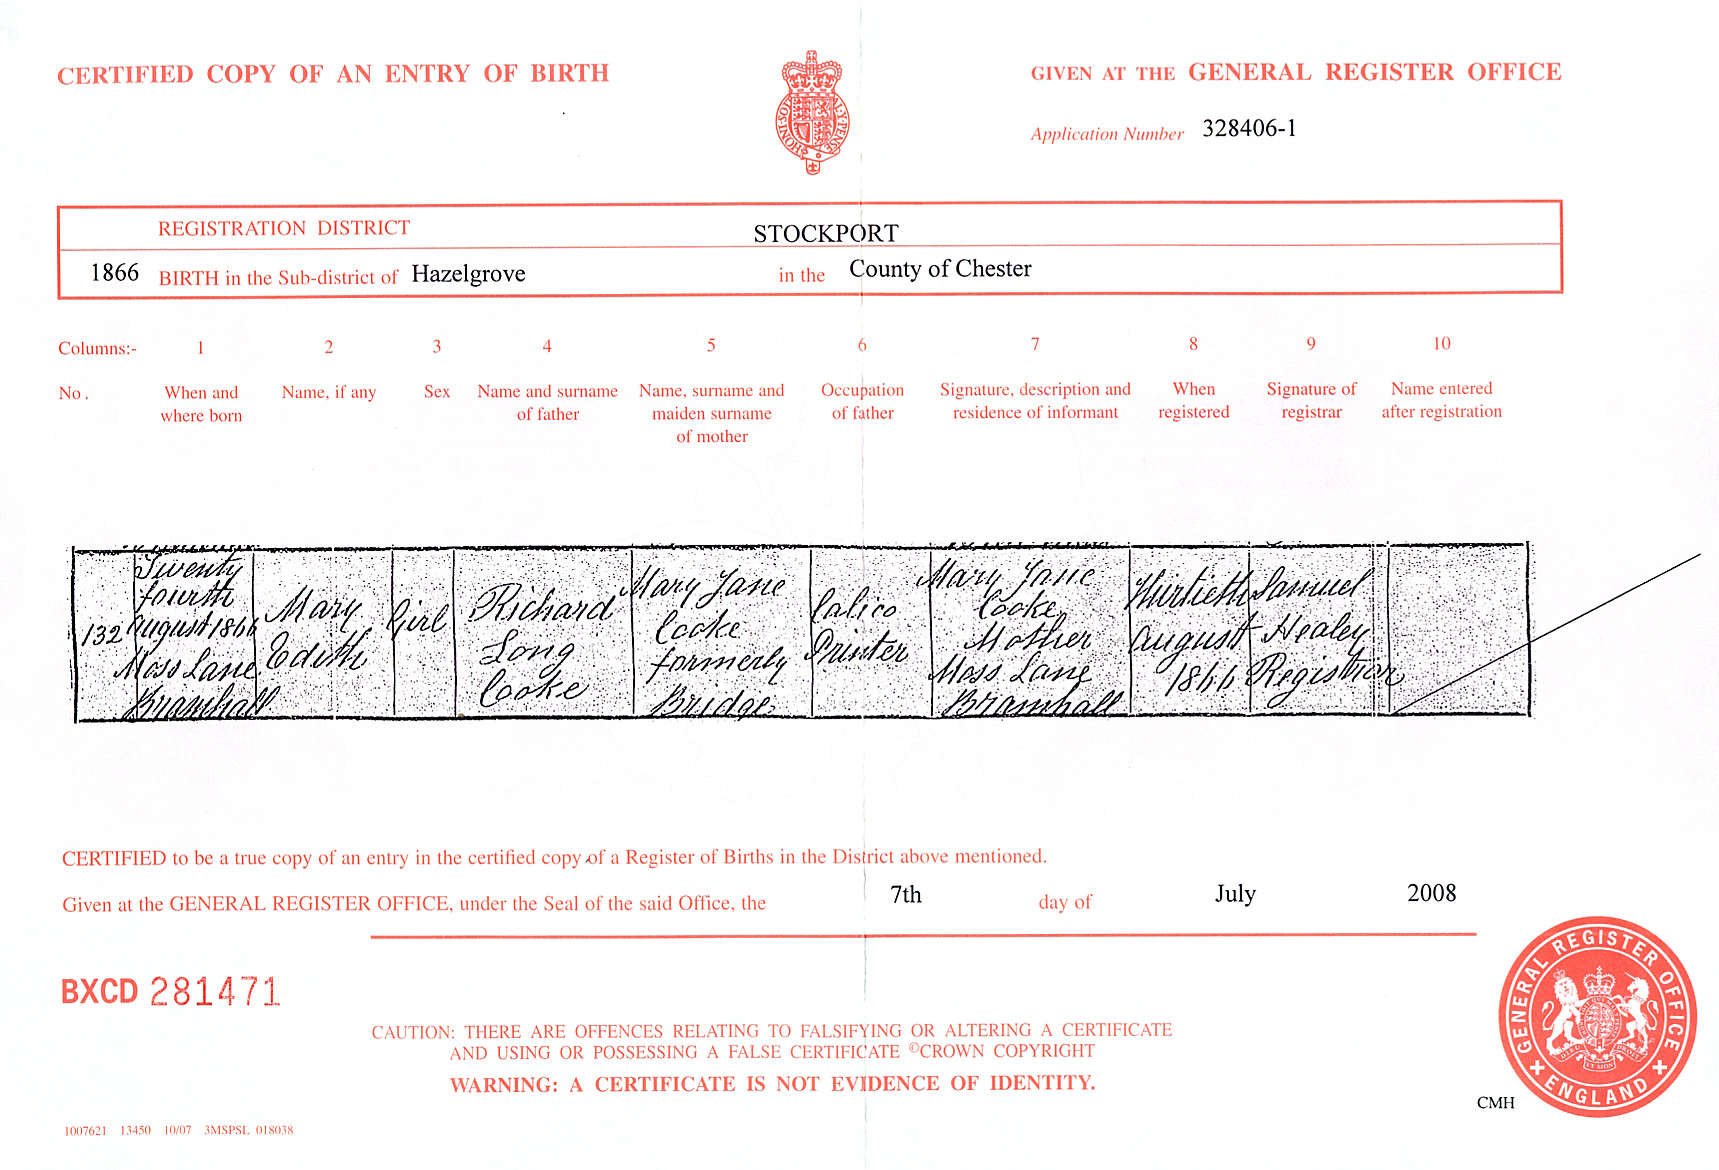 CERTIFIED COPY OF AN ENTRY OF BIRTH
GIVEN AT THE GENERAL REGISTER OFFICE
HONI·SOIT
Y·PENSE
Application Number 328406-1
REGISTRATION DISTRICT STOCKPORT
1866 BIRTH in the Sub-district of Hazelgrove in the County of Chester
Columns:- 1 2 3 4 5 6 7 8 9 10
No. When and where born
Name, if any
Sex
Name and surname of father
Name, surname and maiden surname of mother
Occupation of father
Signature, description and residence of informant
When registered
Signature of registrar
Name entered after registration
132
Twenty
fourth
August 1866
Moss Lane
Bramhall
Mary
Edith
Girl
Richard
Long
Cooke
Mary Jane
Cooke
formerly
Bridge
Calico
Printer
Mary Jane
Cooke
Mother
Moss Lane
Bramhall
Thirtieth
August
1866
Samuel
Healey
Registrar
CERTIFIED to be a true copy of an entry in the certified copy of a Register of Births in the District above mentioned.
Given at the GENERAL REGISTER OFFICE, under the Seal of the said Office, the 7th day of July 2008
BXCD 281471
CAUTION: THERE ARE OFFENCES RELATING TO FALSIFYING OR ALTERING A CERTIFICATE
AND USING OR POSSESSING A FALSE CERTIFICATE ©CROWN COPYRIGHT
WARNING: A CERTIFICATE IS NOT EVIDENCE OF IDENTITY.
GENERAL REGISTER OFFICE
ENGLAND
CMH
1007621 13450 10/07 3MSPSL 018038